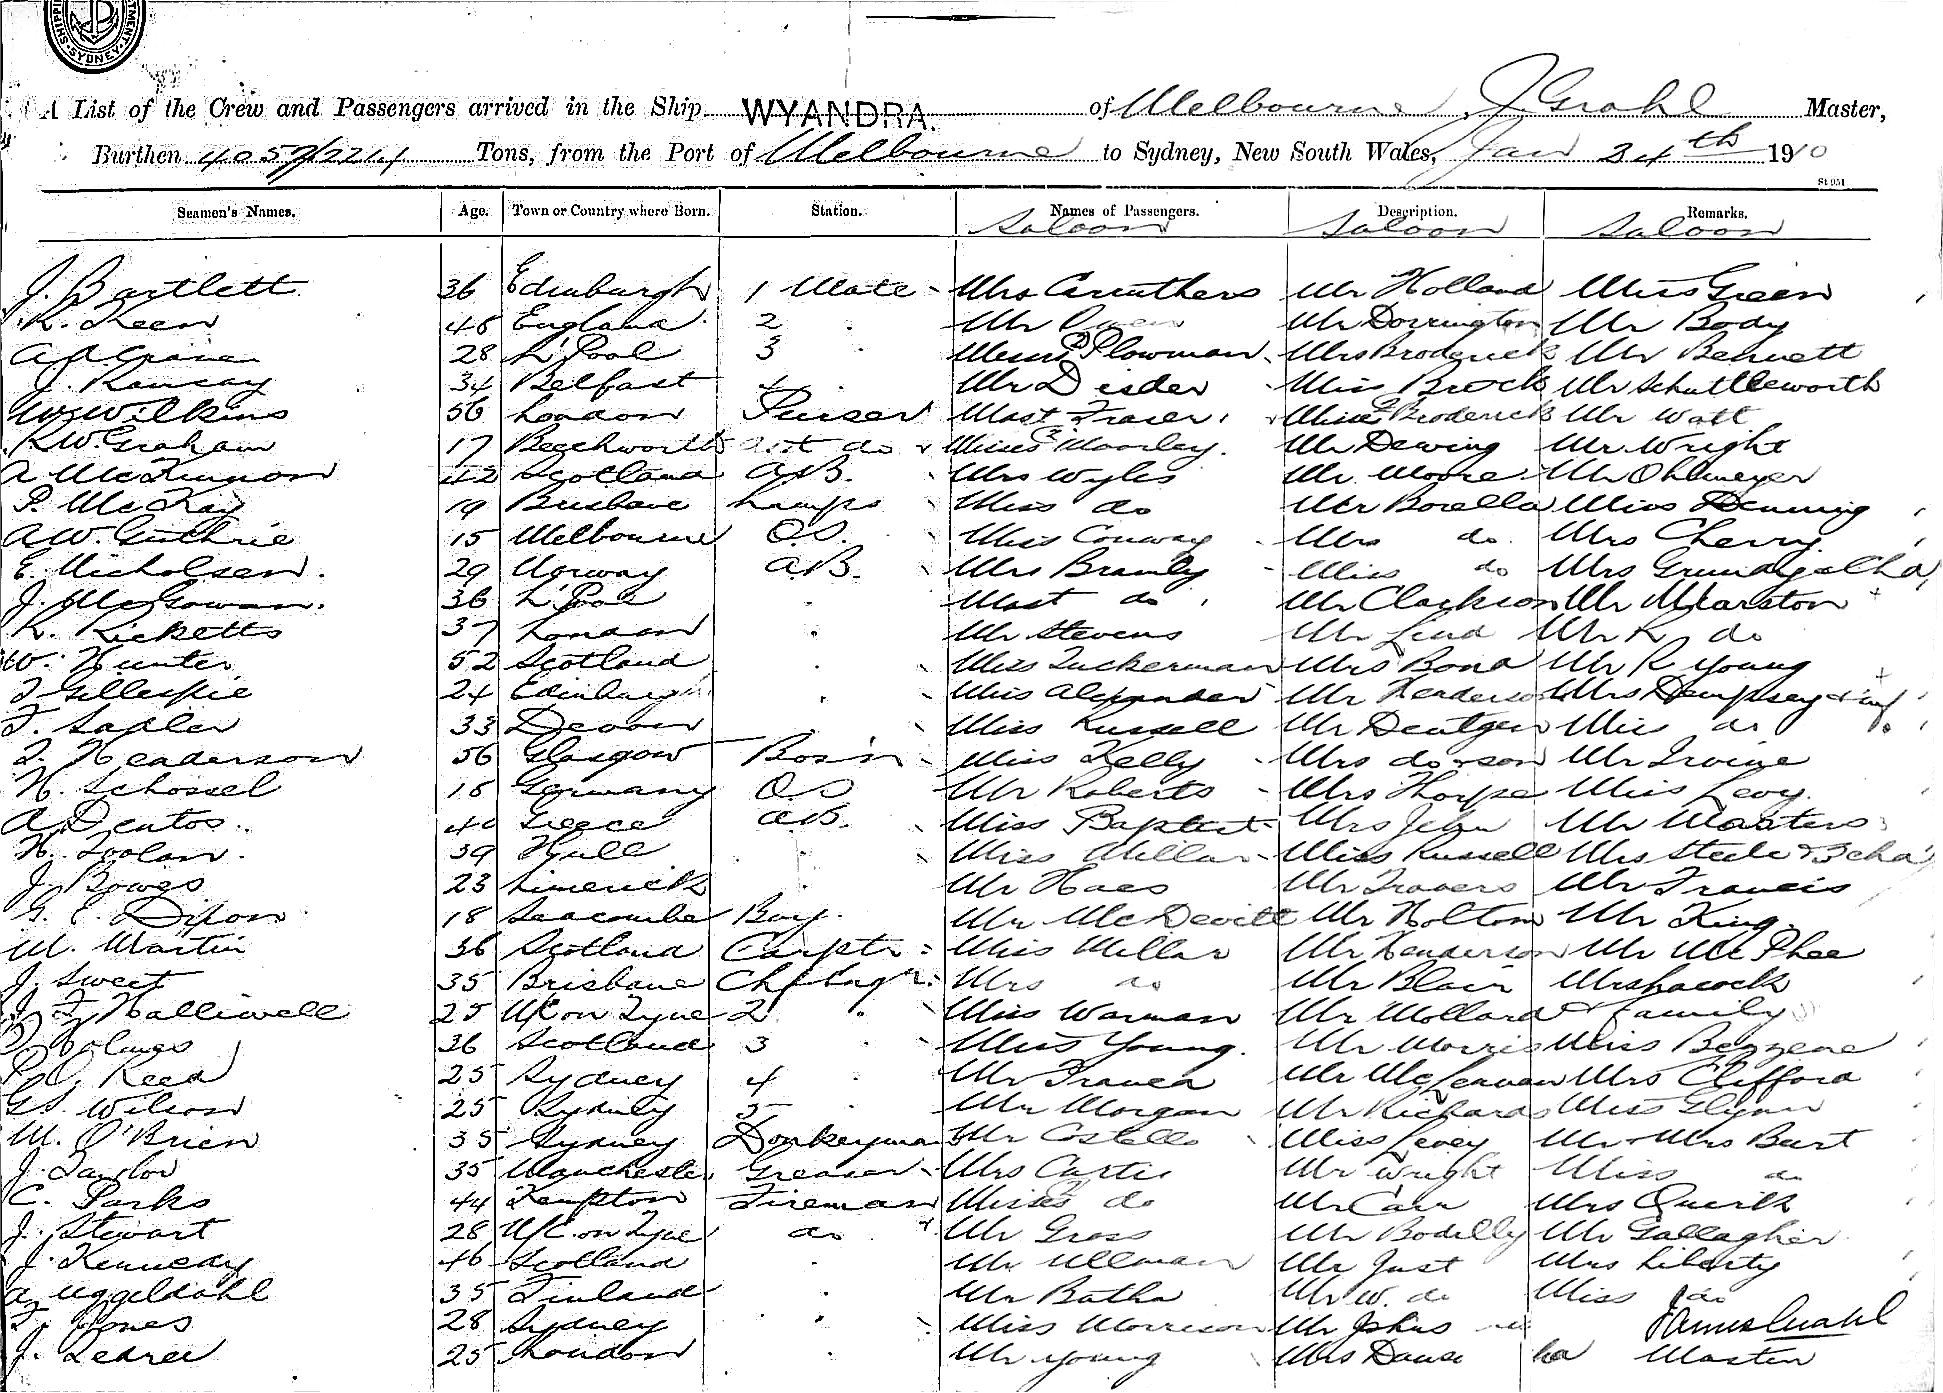 SYDNEY
A List of the Crew and Passengers arrived in the Ship WYANDRA. of Melbourne, J. Grahl Master,
Burthen 4057/2241 Tons, from the Port of Melbourne to Sydney, New South Wales, Jan 24th 1910
Seamen's Names. Age. Town or Country where Born. Station. Names of Passengers. Description. Remarks.
Saloon Saloon Saloon
J. Bartlett 36 Edinburgh 1 Mate Mrs Caruthers Mr Holland Miss Green
K. Keen England 2 Mr Mr Dorrington Mr Body
28 L'Pool 3 Messrs 2 Plowman Mrs Broderick Mr Bennett
J. Ramsay 34 Belfast 4 Mr Disder Miss Brock Mr Schuttleworth
Wilkins 56 London Purser Mast Fraser Misses 2 Broderick Mr Watt
R.W. Graham 17 Beechworth Asst do Misses 2 Moorley Mr Dewing Mr Wright
A McKinnon 42 Scotland A.B. Mrs Wyles Mr Moore Mr Ohlmeyer
P. McKay 19 Brisbane Lamps Miss do Mr Borella Miss Denning
A.W. Guthrie 15 Melbourne O.S. Miss Conway Mrs do Mrs Cherry
E. Nicholsen 29 Norway A.B. Mrs Bramly Miss do Mrs Grundy & Chd
J. McGowan 36 L'Pool Mast do Mr Clackson Mr M Marston
R. Ricketts 37 London Mr Stevens Mr Lind Mr R do
W. Hunter 52 Scotland Miss Tuckerman Mrs Bond Mr R Young
T Gillespie 24 Edinburgh Miss Alexander Mr Henderson Mrs Dempsey & inf
F. Sadler 33 Devon Miss Russell Mr Dentgen Miss do
T. Henderson 56 Glasgow Bos'n Miss Kelly Mrs do & son Mr Irvine
H. Schossel 18 Germany O.S Mr Roberts Mrs Thorpe Miss Levy
A Dentos 40 Greece A.B. Miss Baptist Mrs Mr Masters
H. Toolan 39 Hull Miss Millar Miss Russell Mrs Steele & 3 chd
J. Bowes 23 Limerick Mr Haes Mr Travers Mr Francis
G. E. Dixon 18 Seacombe Boy Mr McDevitt Mr Holtom Mr King
M. Martin 36 Scotland Carptr Miss Millar Mr Henderson Mr McPhee
J. Sweet 35 Brisbane Chf Engr Mrs do Mr Blair Mrs Pacock
J. F. Halliwell 25 N/C on Tyne 2 Miss Warman Mr Mollard & family
Holmes 36 Scotland 3 Miss Young Mr Morris Miss
Reed 25 Sydney 4 Mr Mr McLennan Mrs Clifford
G.S. Wilson 25 Sydney 5 Mr Morgan Mr Richards Miss Glynn
M. O'Brien 35 Sydney Donkeyman Mr Costello Miss Levey Mr & Mrs Burt
J. Taylor 35 Manchester Greaser Mrs Curtis Mr Wright Miss do
C. Parks 44 Kempton Fireman Misses 2 do Mr Carr Mrs Quirk
J. Stewart 28 N/C on Tyne do Mr Gross Mr Bodelly Mr Gallagher
J. Kennedy 46 Scotland Mr Ullman Mr Just Mrs Liberty
A. Uggeldahl 35 Finland Mr Batha Mr W. do Miss do
Jones 28 Sydney Miss Morrison Mr James Grahl
J. 25 London Mr Young Mrs Master